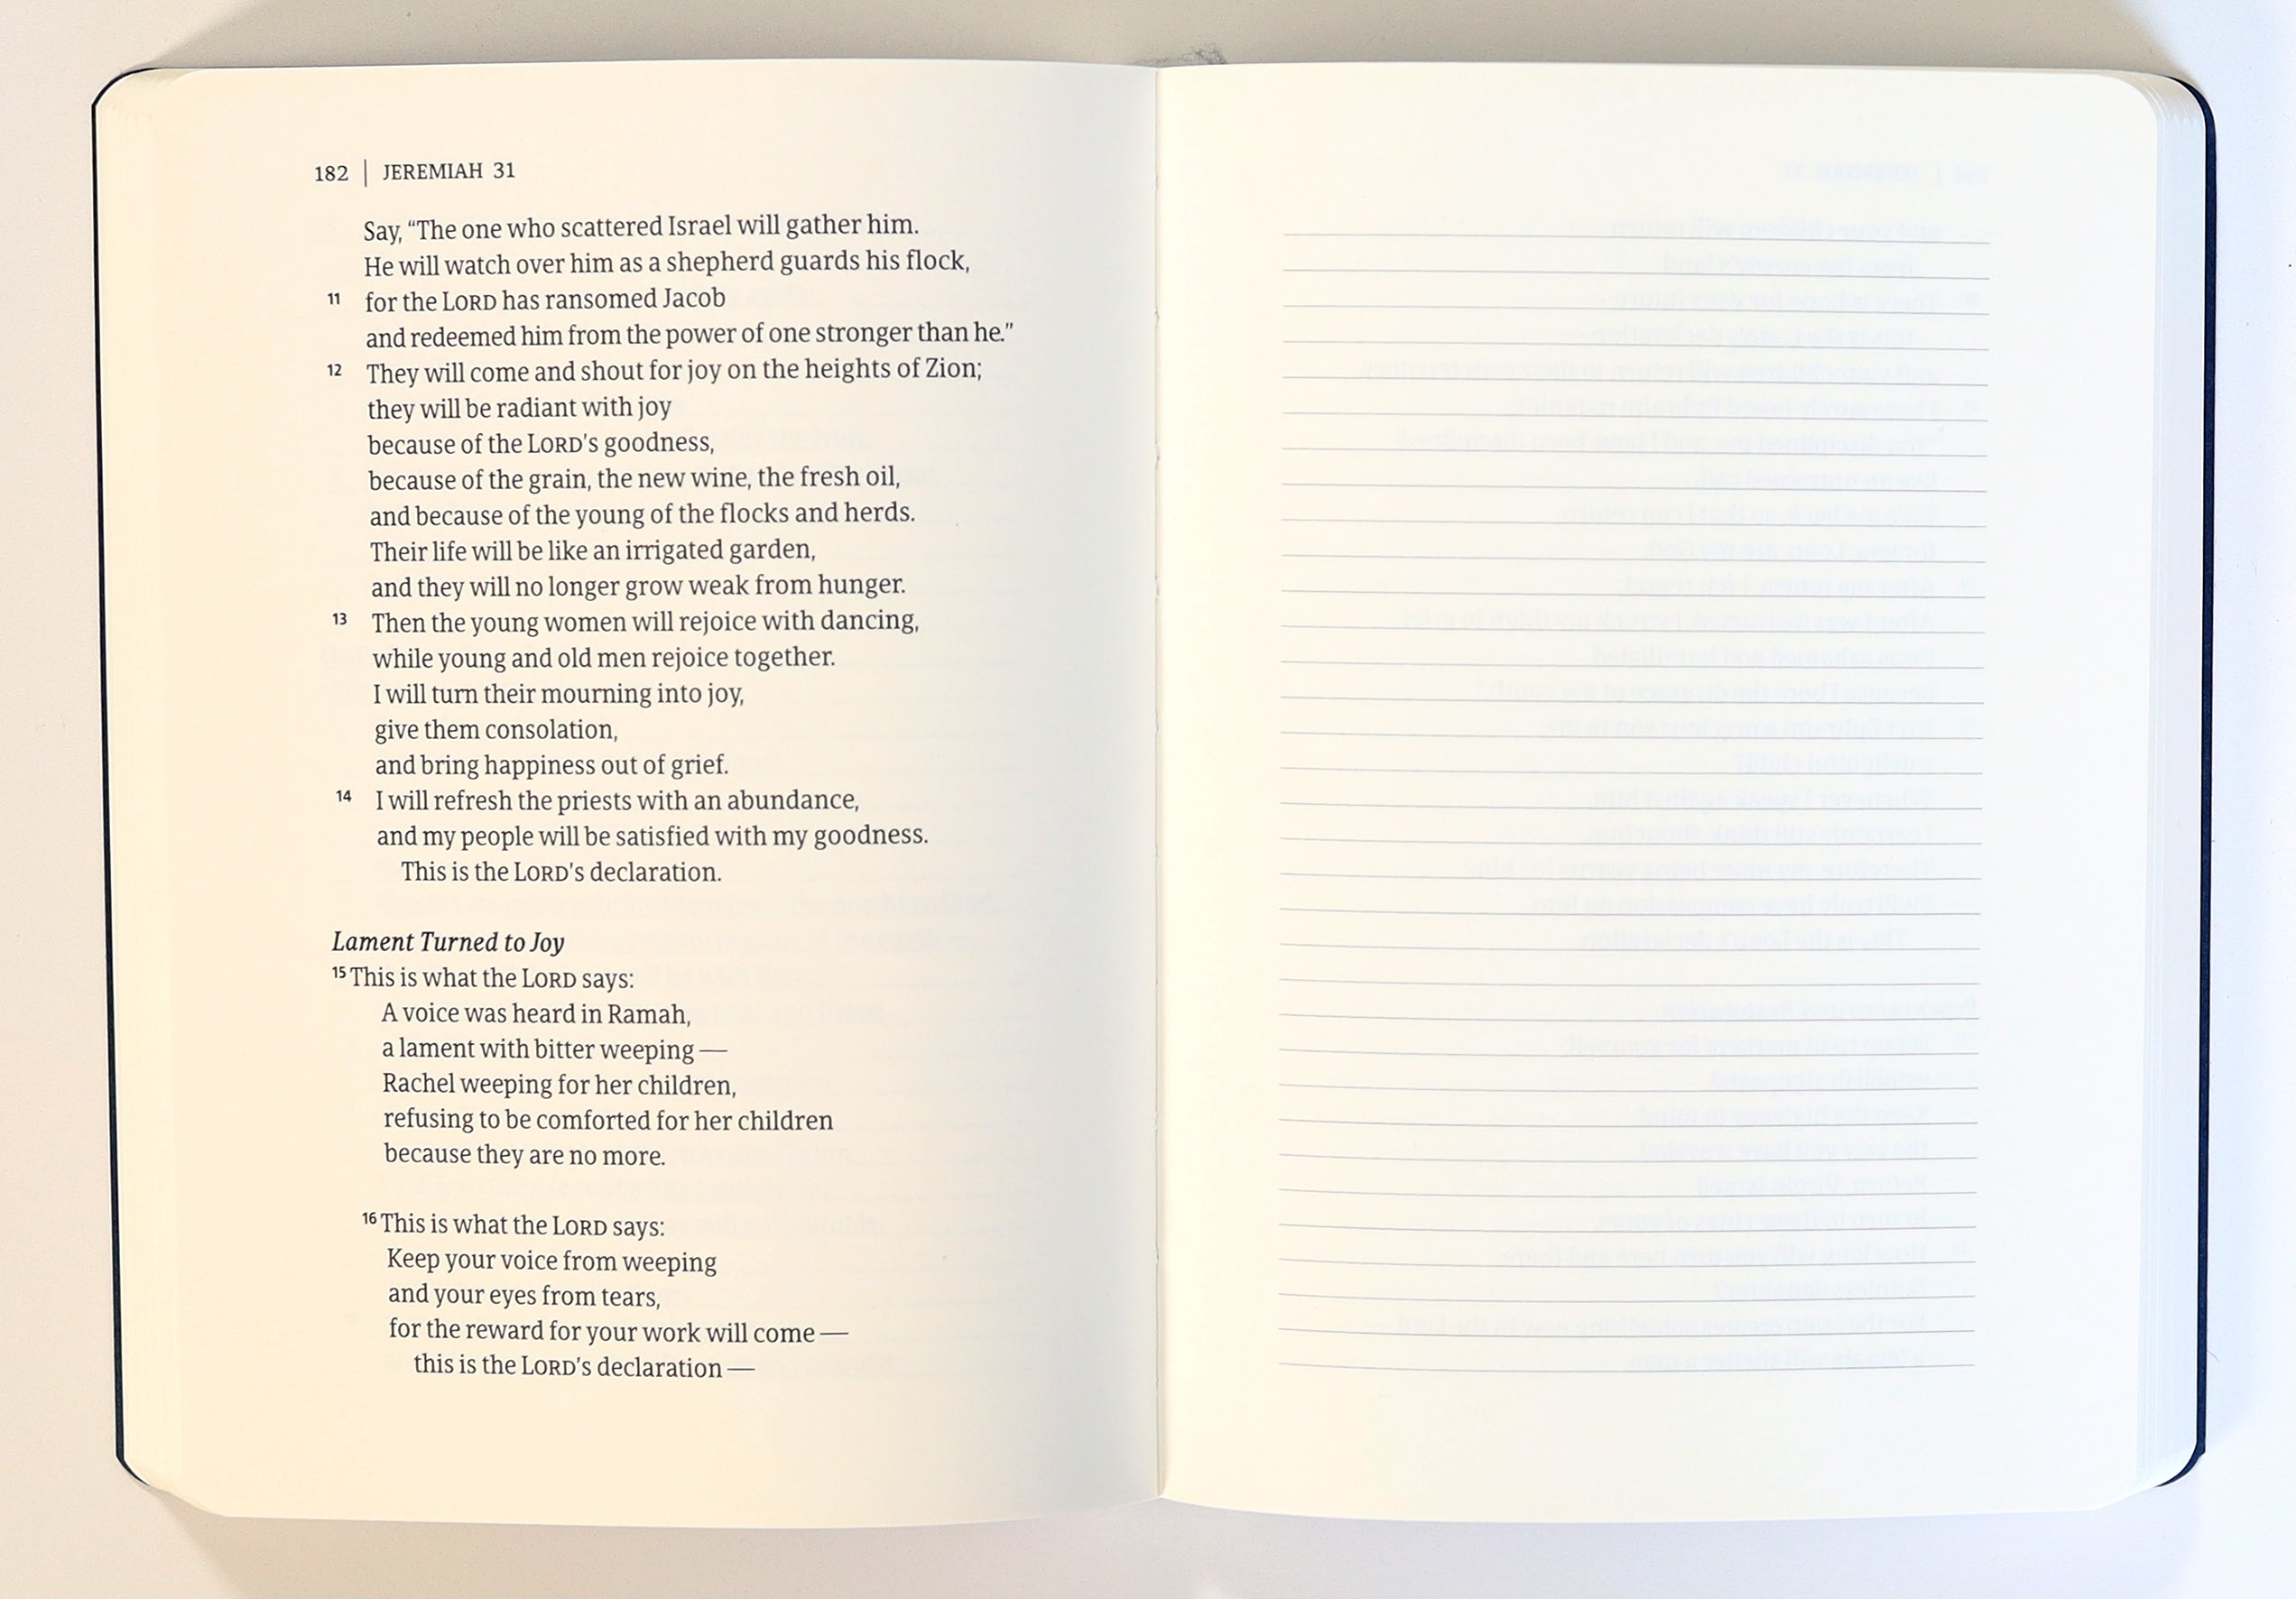 182 | JEREMIAH 31
Say, “The one who scattered Israel will gather him.
He will watch over him as a shepherd guards his flock,
11 for the LORD has ransomed Jacob
and redeemed him from the power of one stronger than he.”
12 They will come and shout for joy on the heights of Zion;
they will be radiant with joy
because of the LORD’s goodness,
because of the grain, the new wine, the fresh oil,
and because of the young of the flocks and herds.
Their life will be like an irrigated garden,
and they will no longer grow weak from hunger.
13 Then the young women will rejoice with dancing,
while young and old men rejoice together.
I will turn their mourning into joy,
give them consolation,
and bring happiness out of grief.
14 I will refresh the priests with an abundance,
and my people will be satisfied with my goodness.
This is the LORD’s declaration.
Lament Turned to Joy
15 This is what the LORD says:
A voice was heard in Ramah,
a lament with bitter weeping —
Rachel weeping for her children,
refusing to be comforted for her children
because they are no more.
16 This is what the LORD says:
Keep your voice from weeping
and your eyes from tears,
for the reward for your work will come —
this is the LORD’s declaration —